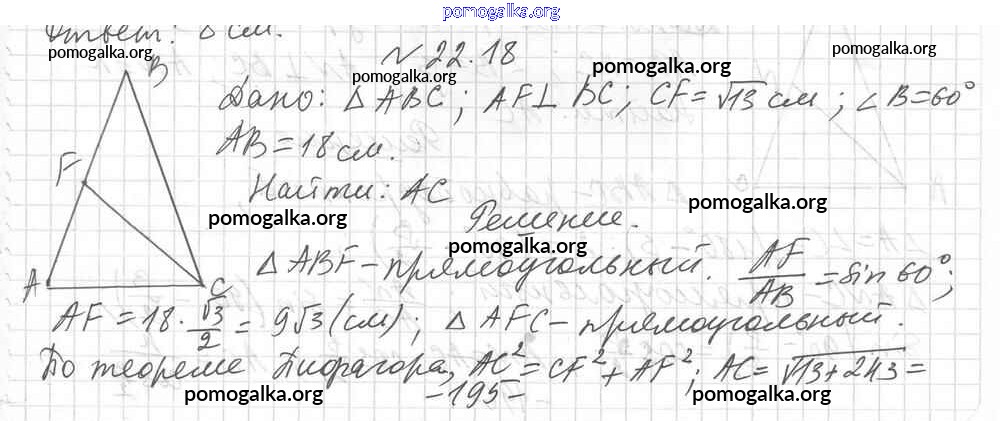 pomogalka.org
Ответ: 8 см.
pomogalka.org
pomogalka.org
№ 22.18
pomogalka.org
B
Дано: △ABC; AF⊥BC; CF=√13 см; ∠B=60°
AB=18 см.
F
Найти: AC
pomogalka.org
pomogalka.org
Решение.
pomogalka.org
△ABF - прямоугольный. AF/AB = sin 60°;
A
C
AF = 18 · √3/2 = 9√3 (см); △AFC - прямоугольный.
По теореме Пифагора, AC² = CF² + AF²; AC = √13+243 =
pomogalka.org
-195-
pomogalka.org
pomogalka.org